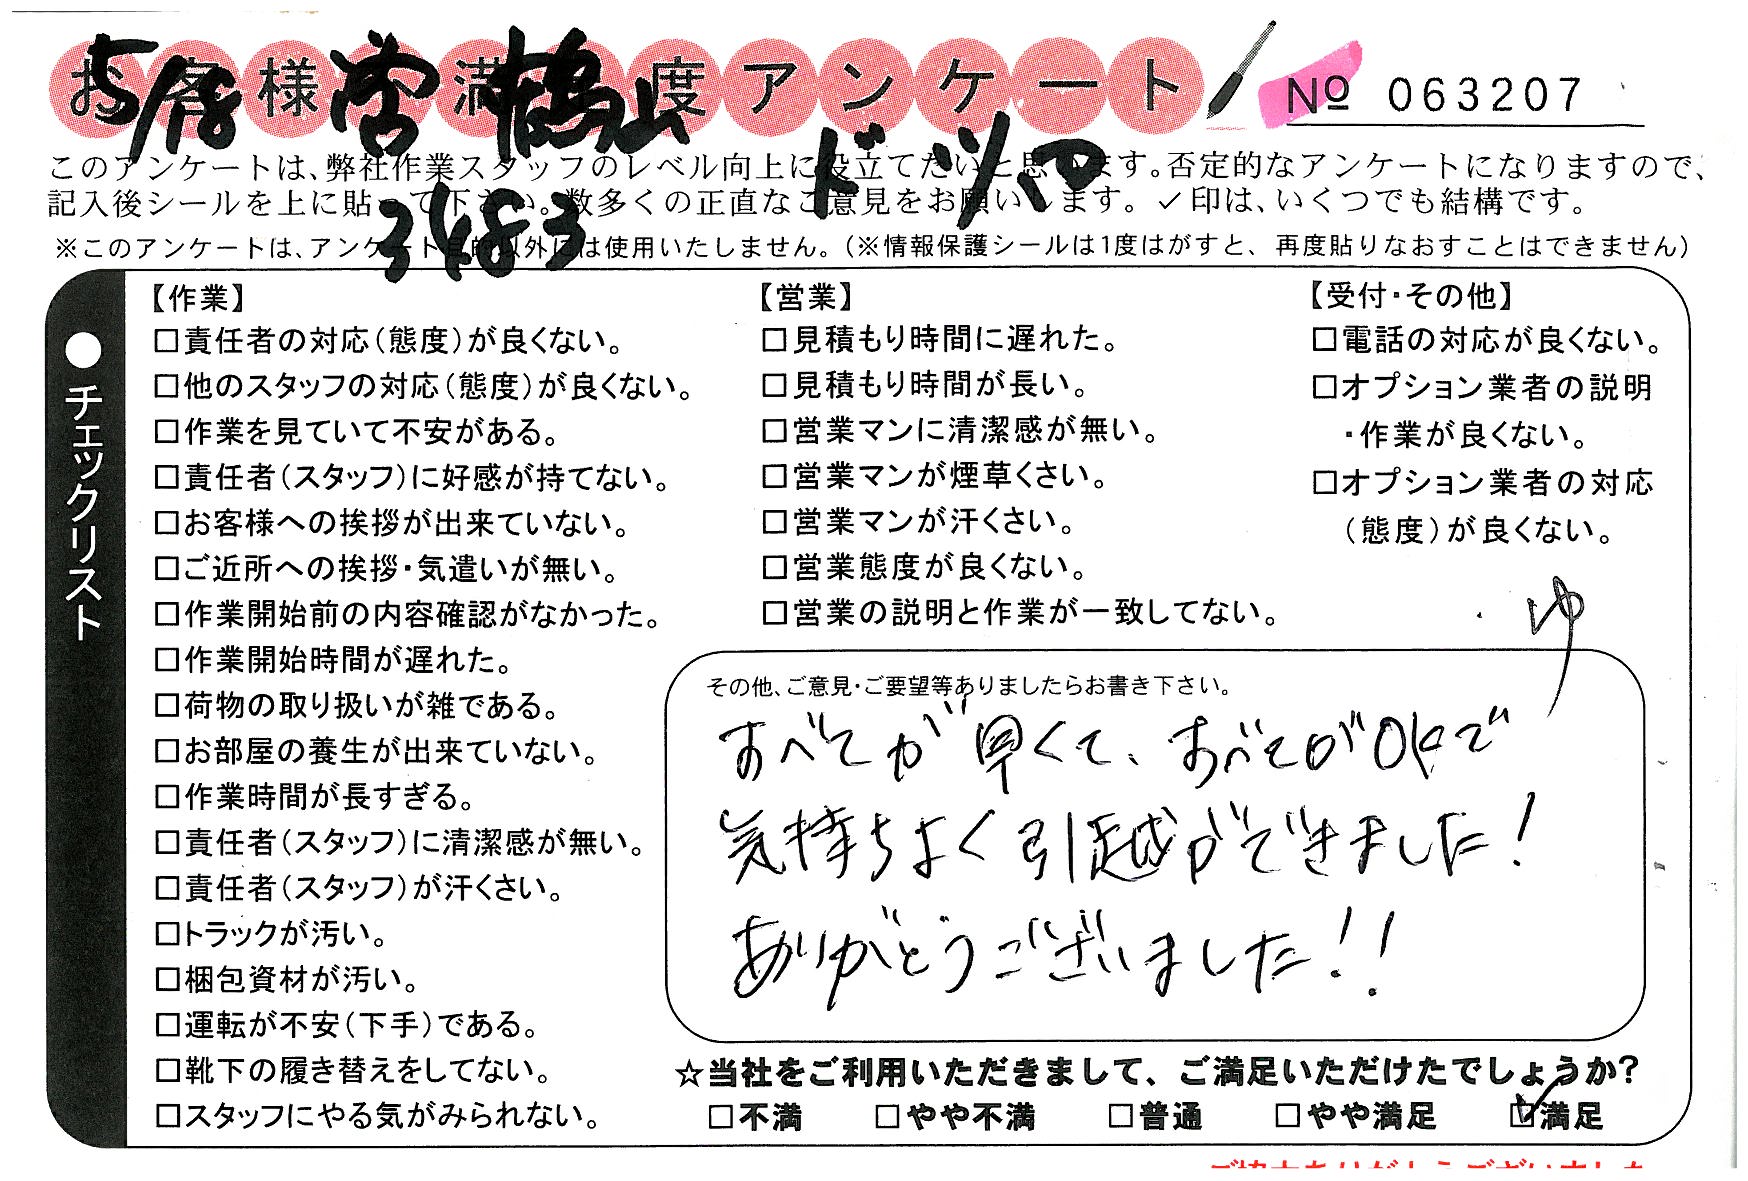 お客様満足度アンケート
№ 063207
5/18 営 鶴山
ドツロ
3483
このアンケートは、弊社作業スタッフのレベル向上に役立てたいと思います。否定的なアンケートになりますので、
記入後シールを上に貼って下さい。数多くの正直なご意見をお願いします。✓印は、いくつでも結構です。
※このアンケートは、アンケート目的以外には使用いたしません。(※情報保護シールは1度はがすと、再度貼りなおすことはできません)
●チェックリスト
【作業】
□責任者の対応(態度)が良くない。
□他のスタッフの対応(態度)が良くない。
□作業を見ていて不安がある。
□責任者(スタッフ)に好感が持てない。
□お客様への挨拶が出来ていない。
□ご近所への挨拶・気遣いが無い。
□作業開始前の内容確認がなかった。
□作業開始時間が遅れた。
□荷物の取り扱いが雑である。
□お部屋の養生が出来ていない。
□作業時間が長すぎる。
□責任者(スタッフ)に清潔感が無い。
□責任者(スタッフ)が汗くさい。
□トラックが汚い。
□梱包資材が汚い。
□運転が不安(下手)である。
□靴下の履き替えをしてない。
□スタッフにやる気がみられない。
【営業】
□見積もり時間に遅れた。
□見積もり時間が長い。
□営業マンに清潔感が無い。
□営業マンが煙草くさい。
□営業マンが汗くさい。
□営業態度が良くない。
□営業の説明と作業が一致してない。
【受付・その他】
□電話の対応が良くない。
□オプション業者の説明
・作業が良くない。
□オプション業者の対応
(態度)が良くない。
ゆ
その他、ご意見・ご要望等ありましたらお書き下さい。
すべてが早くて、すべてがOKで
気持ちよく引越ができました!
ありがとうございました!!
☆当社をご利用いただきまして、ご満足いただけたでしょうか?
□不満 □やや不満 □普通 □やや満足 ☑満足
ご協力ありがとうございました